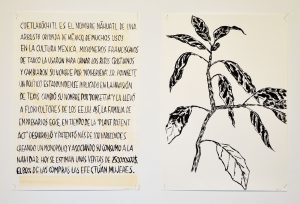 CUETLAXÓCHITL ES EL NOMBRE NÁHUATL DE UNA
ARBUSTO ORIUNDA DE MÉXICO, DE MUCHOS USOS
EN LA CULTURA MEXICA. MISIONEROS FRANCISCANOS
DE TAXCO LA USARON PARA GANAR LOS RITOS CRISTIANOS
Y CAMBIARON SU NOMBRE POR "NOCHEBUENA". J.R. POINSETT
UN POLÍTICO ESTADUNIDENSE IMPLICADO EN LA INVASIÓN
DE TEXAS CAMBIÓ SU NOMBRE POR "POINSETTIA" Y LA LLEVÓ
A FLORICULTORES DE LOS EE.UU. ASÍ LA FAMILIA DE
EMPRESARIOS ECKE, EN TIEMPO DE LA "PLANT PATENT
ACT" DESARROLLÓ Y PATENTÓ MÁS DE 100 HÍBRIDOS
CREANDO UN MONOPOLIO Y ASOCIANDO SU CONSUMO A LA
NAVIDAD. HOY SE ESTIMAN UNAS VENTAS DE
EL 80% DE LAS COMPRAS LAS EFECTÚAN MUJERES.